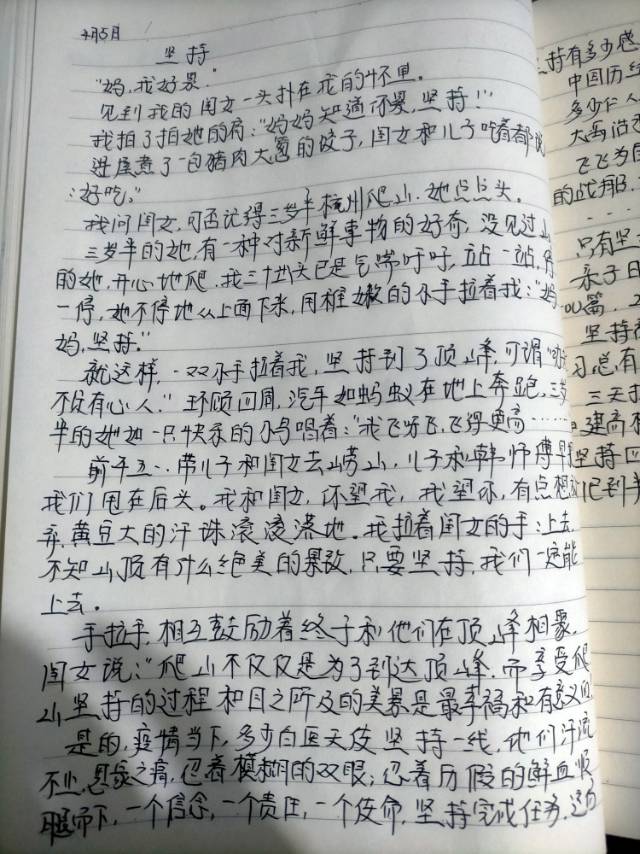 4月5日
坚持
"妈，我好累."
见到我的闺女一头扑在我的怀里。
我拍了拍她的肩："妈妈知道你累，坚持！"
进屋煮了一包猪肉大葱的饺子，闺女和儿子吃着都说
："好吃。"
我问闺女，可否记得三岁半杭州爬山.她点点头.
三岁半的她，有一种对新鲜事物的好奇，没见过山
的她，开心地爬.我三十出头已是气喘吁吁，站一站，停
一停，她不停地从上面下来，用稚嫩的小手拉着我："妈
妈，坚持."
就这样，一双小手拉着我，坚持到了顶峰，可谓"功夫
不负有心人."环顾四周，汽车如蚂蚁在地上奔跑，三岁
半的她如一只快乐的小鸟唱着："我飞呀飞，飞得更高……
前年五一，带儿子和闺女去崂山，儿子和韩师傅早把
我们甩在后头。我和闺女，你望我，我望你，有点想放
弃，黄豆大的汗珠滚滚落地。我拉着闺女的手：上去，
不知山顶有什么绝美的景致，只要坚持，我们一定能
上去。
手拉手，相互鼓励着终于和他们在顶峰相聚，
闺女说："爬山不仅仅是为了到达顶峰，而享受爬
山，坚持的过程和目之所及的美景是最幸福和有意义的
是的，疫情当下，多少白医天使坚持一线，他们汗流
不止，忍着模糊的双眼；忍着的鲜血顺
腿而下，一个信念，一个责任，一个使命，坚持完成任务，这
持有多少感
中国历经
多少仁人
大禹治水
飞飞为国
的战服.
只有坚
永于日
00篇.
坚持
习总，有
三天打
建高
坚持四
化到半